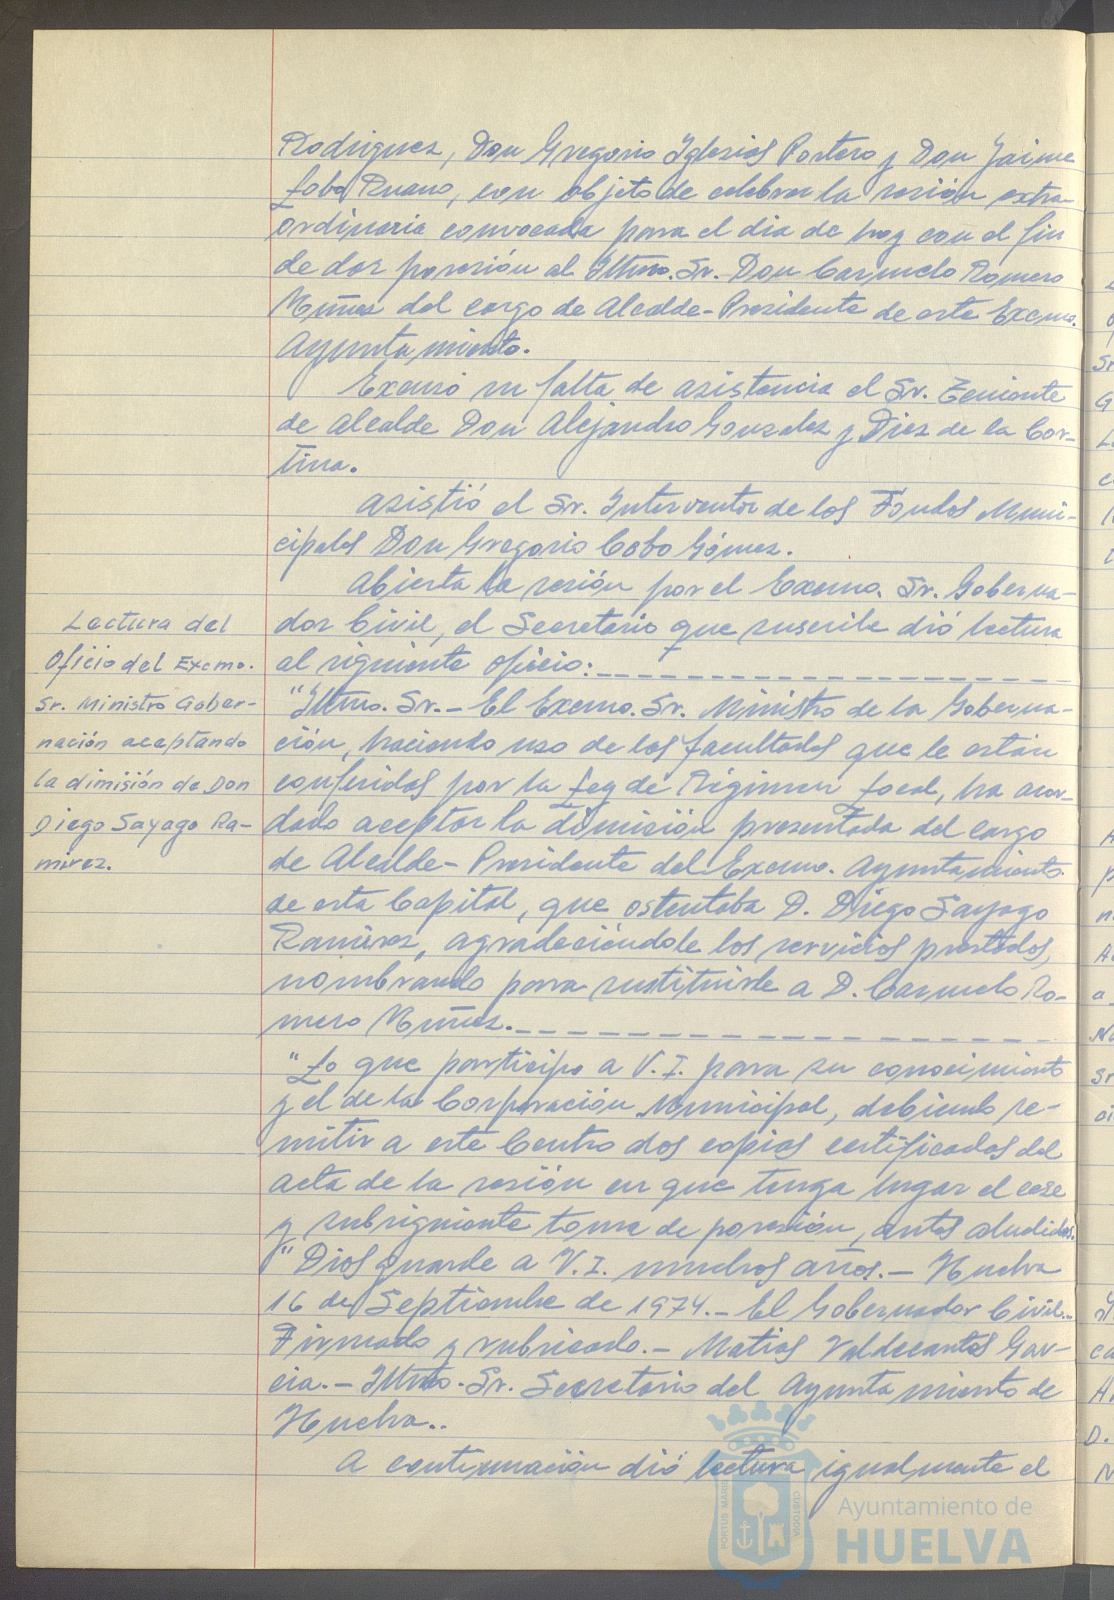 Rodriguez, Don Gregorio Iglesias Portero y Don Jaime
Lobo Ruano, con objeto de celebrar la sesión extra-
ordinaria convocada para el dia de hoy con el fin
de dar posesión al Iltmo. Sr. Don Carmelo Romero
Núñez del cargo de Alcalde-Presidente de este Excmo.
Ayuntamiento.
Excusó su falta de asistencia el Sr. Teniente
de Alcalde Don Alejandro Gonzalez y Diez de la Cor-
tina.
Asistió el Sr. Interventor de los Fondos Muni-
cipales Don Gregorio Cobo Gómez.
Abierta la sesión por el Excmo. Sr. Goberna-
dor Civil, el Secretario que suscribe dió lectura
al siguiente oficio:
Lectura del
Oficio del Excmo.
Sr. Ministro Gober-
nación aceptando
la dimisión de Don
Diego Sayago Ra-
mirez.
"Iltmo. Sr.- El Excmo. Sr. Ministro de la Goberna-
ción, haciendo uso de las facultades que le están
conferidas por la Ley de Régimen Local, ha acor-
dado aceptar la dimisión presentada del cargo
de Alcalde-Presidente del Excmo. Ayuntamiento
de esta Capital, que ostentaba D. Diego Sayago
Ramirez, agradeciéndole los servicios prestados,
nombrando para sustituirle a D. Carmelo Ro-
mero Núñez.
"Lo que participo a V.I. para su conocimiento
y el de la Corporación Municipal, debiendo re-
mitir a este Centro dos copias certificadas del
acta de la sesión en que tenga lugar el cese
y subsiguiente toma de posesión, antes aludidos.
"Dios guarde a V.I. muchos años.- Huelva
16 de Septiembre de 1974.- El Gobernador Civil.-
Firmado y rubricado.- Matias Valdecantos Gar-
cia.- Iltmo. Sr. Secretario del Ayuntamiento de
Huelva..
A continuación dió lectura igualmente el
PORTUS MARIS
CUSTODIA
Ayuntamiento de
HUELVA